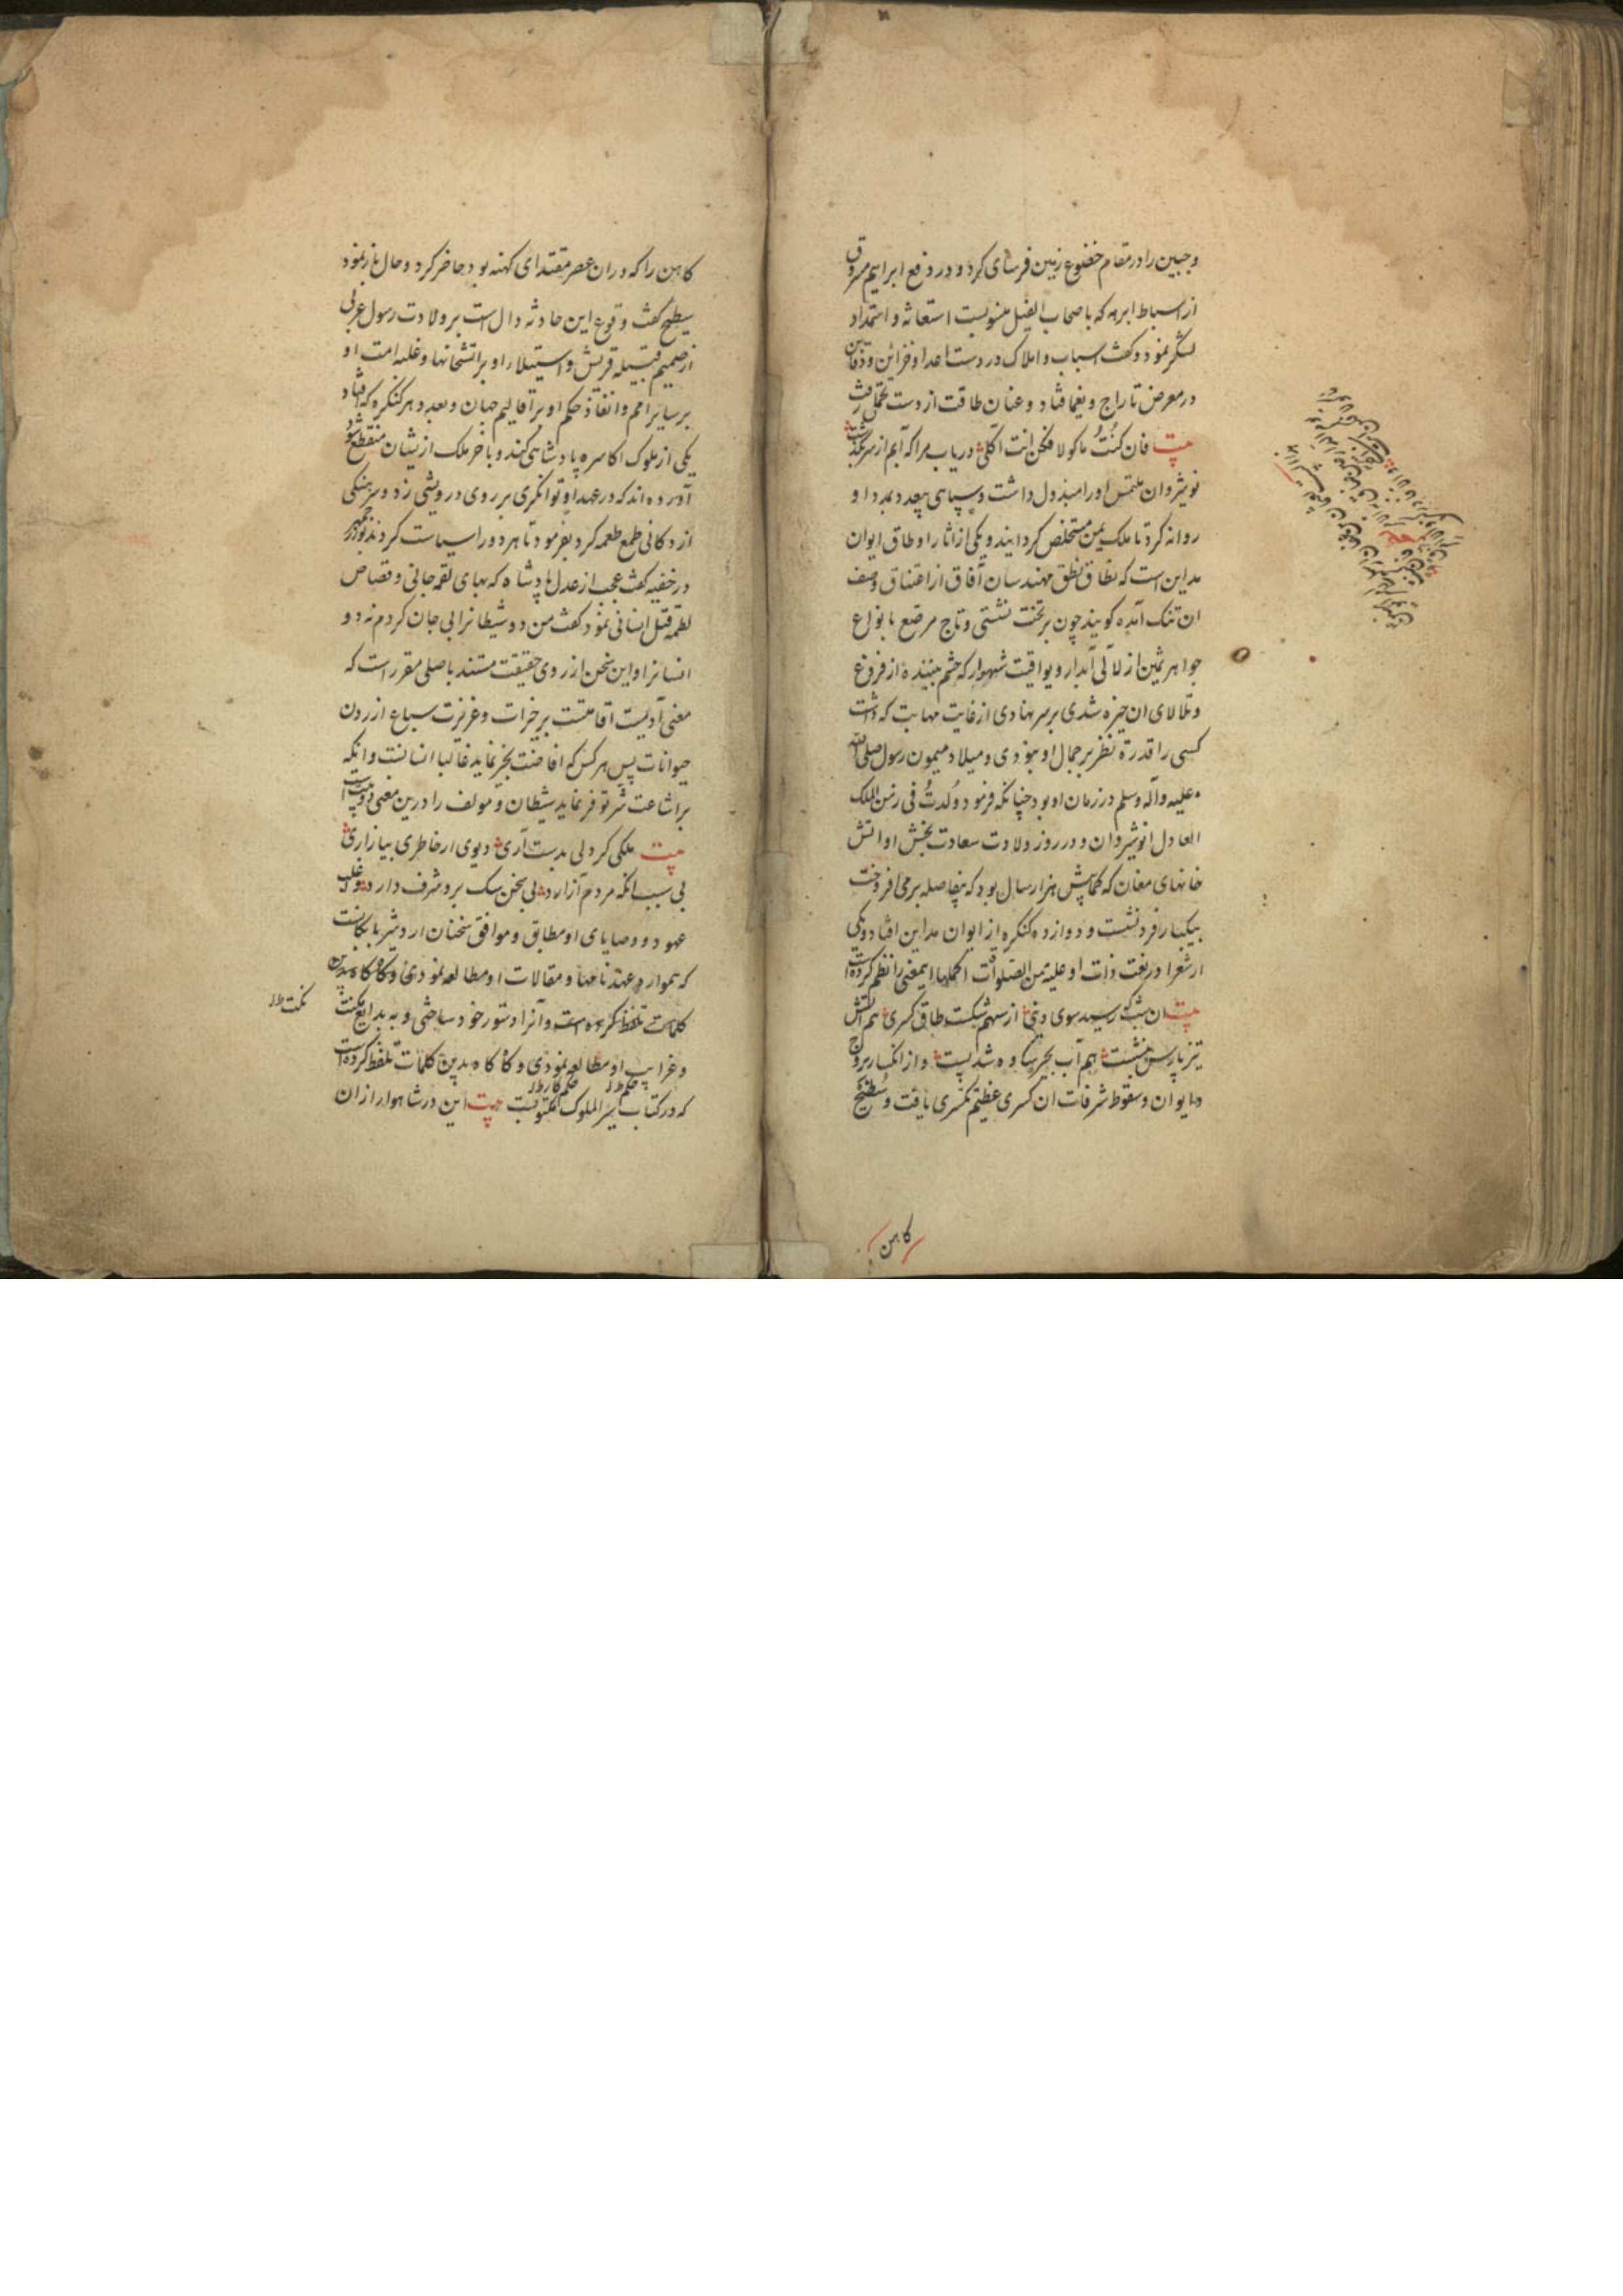 وجبین را در مقام خضوع زمین فرسای کرد و در دفع ابراهیم مسروق
از اسباط ابرهه که باصحاب الفیل منسوبست استغاثه و استمداد
لشکر نمود و کفت اسباب و املاک در دست اعدا و خزاین و دفاین
در معرض تاراج و یغما فتاد و عنان طاقت از دست تحمل رفت
بیت فان کُنتُ ماکولا فکن انت آکلی دریاب مرا که آبم از سر بگذشت
نوشروان ملتمس او را مبذول داشت و سپاهی بیعد و بمدد او
روانه کرد تا ملک یمن مستخلص کردانیدند و یکی از اثار او طاق ایوان
مداین است که نطاق نطق مهندسان آفاق از اعتناق وصف
ان تنک آمده کویند چون بر تخت نشستی و تاج مرصع بانواع
جواهر ثمین از لآلی آبدار و یواقیت شهوار که چشم بیننده از فروغ
و تلالای ان خیره شدی بر سر نهادی از غایت مهابت که داشت
کسی را قدرة نظر بر جمال او نبودی و میلاد میمون رسول صلی الله
علیه وآله وسلم در زمان او بود چنانکه فرمود وُلدتُ فی زمن الملک
العادل انوشیروان و در روز ولادت سعادت بخش او اتش
خانهای مغان که کمابیش هزار سال بود که بیفاصله برمی افروخت
بیکبار فرو نشست و دوازده کنکره از ایوان مداین افتاد و یکی
از شعرا در نعت ذات او علیه من الصلوات اکملها اینمعنی را نظم کرده است
بیت ان شب که رسید سوی دنیی از سهم شکست طاق کسری هم اتش
تیز پارس بنشست هم آب بحیره ساوه شد پست و از انکسار بروج
و ایوان و سقوط شرفات ان کسری عظیم بکسری یافت و سُطیح
کاهن
کاهن را که در ان عصر مقتدای کهنه بود حاضر کرد و حال باز نمود
سطیح کفت وقوع این حادثه دال است بر ولادت رسول عربی
از صمیم قبیله قریش و استیلا او بر اتشخانها و غلبه امت او
بر سایر امم و انفاذ حکم او بر اقالیم جهان و بعدد هر کنکره که فتاد
یکی از ملوک اکاسره پادشاهی کند و باخر ملک از یشان منقطع شود
آورده اند که در عهد او توانکری بر روی درویشی زد و سرهنکی
از دکانی طمع طعمه کرد بفرمود تا هر دو را سیاست کردند بوزرجمهر
در خفیه کفت عجب از عدل پادشاه که بهای لقمه جانی و قصاص
لطمه قتل انسانی نمود کفت من دو شیطانرا بی جان کردم نه دو
انسانرا و این سخن از روی حقیقت مستند باصلی مقرر است که
معنی آدمیت اقامتست بر خیرات و غریزت سباع ازردن
حیوانات پس هر کس که افاضت بخیر نماید غالبا انسانست و انکه
بر اشاعت شر توفر نماید شیطان و مولف را درین معنی دو بیت است
بیت ملکی کر دلی بدست آری دیوی ار خاطری بیازاری
بی سبب انکه مردم آزارد بی سخن سک برو شرف دارد و اغلب
عهود و وصایای او مطابق و موافق سخنان اردشیر بابکانست
که همواره عهدنامها و مقالات او مطالعه نمودی و کاه کاه بدین
کلمات تلفظ کرده است و آنرا دستور خود ساختی و به بدایع نکت
و غرایب او مطالعه نمودی و کاه کاه بدین کلمات تلفظ کرده است
که در کتاب سیر الملوک مکتوبست بیت این در شاهوار از ان